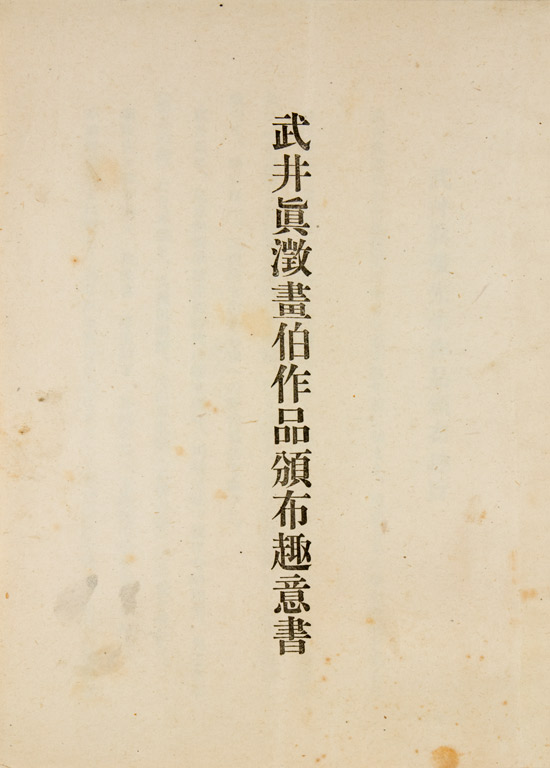 武井眞澂畫伯作品頒布趣意書